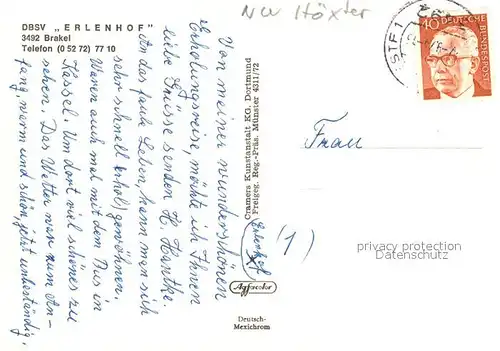 DBSV „ERLENHOF"
3492 Brakel
Telefon (0 52 72) 77 10
NW Höxter
Von meiner wunderschönen
Erholungsreise, möchte ich Ihnen
liebe Grüsse senden H. Hantke.
An das faule Leben, kann man sich
sehr schnell (erhol) gewöhnen.
Waren auch mal mit dem Bus in
Kassel. Um dort viel schönes zu
sehen. Das Wetter war zum An-
fang, warm und schön, jetzt unbeständig.
Cramers Kunstanstalt KG. Dortmund
Freigeg. Reg.-Präs. Münster 4311/72
Erlenhof
x
(1)
Agfacolor
Deutsch-
Mexichrom
40 DEUTSCHE
BUNDESPOST
Frau
privacy protection
Datenschutz